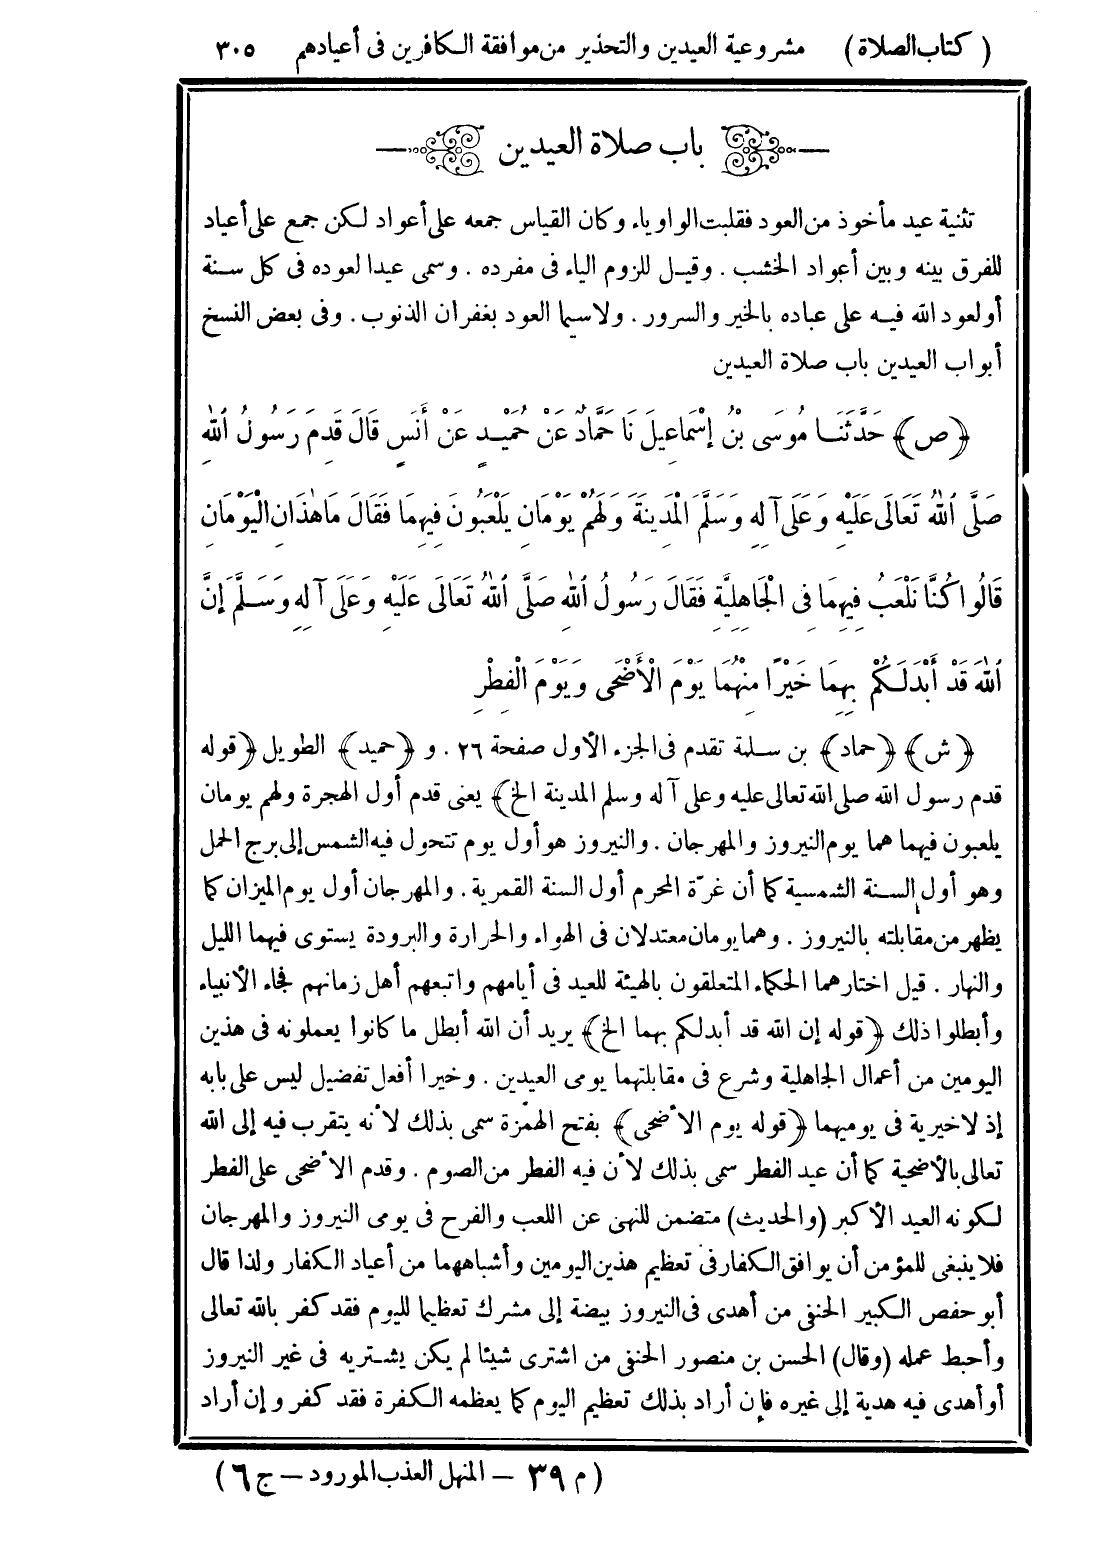 ( كتاب الصلاة ) مشروعية العيدين والتحذير من موافقة الكافرين فى أعيادهم ٣٠٥
باب صلاة العيدين
تثنية عيد مأخوذ من العود فقلبت الواو ياء وكان القياس جمعه على أعواد لكن جمع على أعياد
للفرق بينه وبين أعواد الخشب . وقيل للزوم الياء فى مفرده . وسمى عيدا لعوده فى كل سنة
أو لعود الله فيه على عباده بالخير والسرور . ولاسيما العود بغفران الذنوب . وفى بعض النسخ
أبواب العيدين باب صلاة العيدين
﴿ص﴾ حَدَّثَنَا مُوسَى بْنُ إِسْمَاعِيلَ نَا حَمَّادٌ عَنْ حُمَيْدٍ عَنْ أَنَسٍ قَالَ قَدِمَ رَسُولُ اللهِ
صَلَّى اللهُ تَعَالَى عَلَيْهِ وَعَلَى آلِهِ وَسَلَّمَ الْمَدِينَةَ وَلَهُمْ يَوْمَانِ يَلْعَبُونَ فِيهِمَا فَقَالَ مَا هٰذَانِ الْيَوْمَانِ
قَالُوا كُنَّا نَلْعَبُ فِيهِمَا فِى الْجَاهِلِيَّةِ فَقَالَ رَسُولُ اللهِ صَلَّى اللهُ تَعَالَى عَلَيْهِ وَعَلَى آلِهِ وَسَلَّمَ إِنَّ
اللهَ قَدْ أَبْدَلَكُمْ بِهِمَا خَيْرًا مِنْهُمَا يَوْمَ الْأَضْحَى وَيَوْمَ الْفِطْرِ
﴿ش﴾ ﴿حماد﴾ بن سلمة تقدم فى الجزء الأول صفحة ٢٦ . و ﴿حميد﴾ الطويل ﴿قوله
قدم رسول الله صلى الله تعالى عليه وعلى آله وسلم المدينة الخ﴾ يعنى قدم أول الهجرة ولهم يومان
يلعبون فيهما هما يوم النيروز والمهرجان . والنيروز هو أول يوم تتحول فيه الشمس إلى برج الحمل
وهو أول السنة الشمسية كما أن غرّة المحرم أول السنة القمرية . والمهرجان أول يوم الميزان كما
يظهر من مقابلته بالنيروز . وهما يومان معتدلان فى الهواء والحرارة والبرودة يستوى فيهما الليل
والنهار . قيل اختارهما الحكماء المتعلقون بالهيئة للعيد فى أيامهم واتبعهم أهل زمانهم فجاء الأنبياء
وأبطلوا ذلك ﴿قوله إن الله قد أبدلكم بهما الخ﴾ يريد أن الله أبطل ما كانوا يعملونه فى هذين
اليومين من أعمال الجاهلية وشرع فى مقابلتهما يومى العيدين . وخيرا أفعل تفضيل ليس على بابه
إذ لاخيرية فى يوميهما ﴿قوله يوم الأضحى﴾ بفتح الهمزة سمى بذلك لأنه يتقرب فيه إلى الله
تعالى بالأضحية كما أن عيد الفطر سمى بذلك لأن فيه الفطر من الصوم . وقدم الأضحى على الفطر
لكونه العيد الأكبر (والحديث) متضمن للنهى عن اللعب والفرح فى يومى النيروز والمهرجان
فلاينبغى للمؤمن أن يوافق الكفار فى تعظيم هذين اليومين وأشباههما من أعياد الكفار ولذا قال
أبو حفص الكبير الحنفى من أهدى فى النيروز بيضة إلى مشرك تعظيما لليوم فقد كفر بالله تعالى
وأحبط عمله (وقال) الحسن بن منصور الحنفى من اشترى شيئا لم يكن يشتريه فى غير النيروز
أو أهدى فيه هدية إلى غيره فإن أراد بذلك تعظيم اليوم كما يعظمه الكفرة فقد كفر وإن أراد
( م ٣٩ – المنهل العذب المورود – ج ٦ )